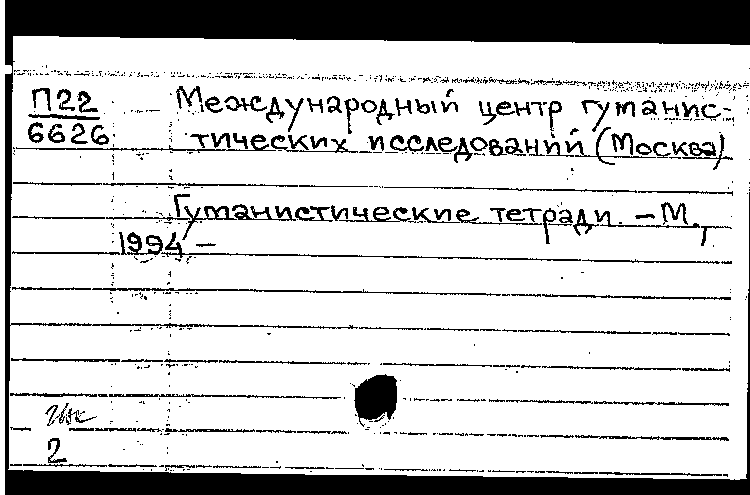 П22
6626
Международный центр гуманис-
тических исследований (Москва)
Гуманистические тетради. – М.,
1994 –
2